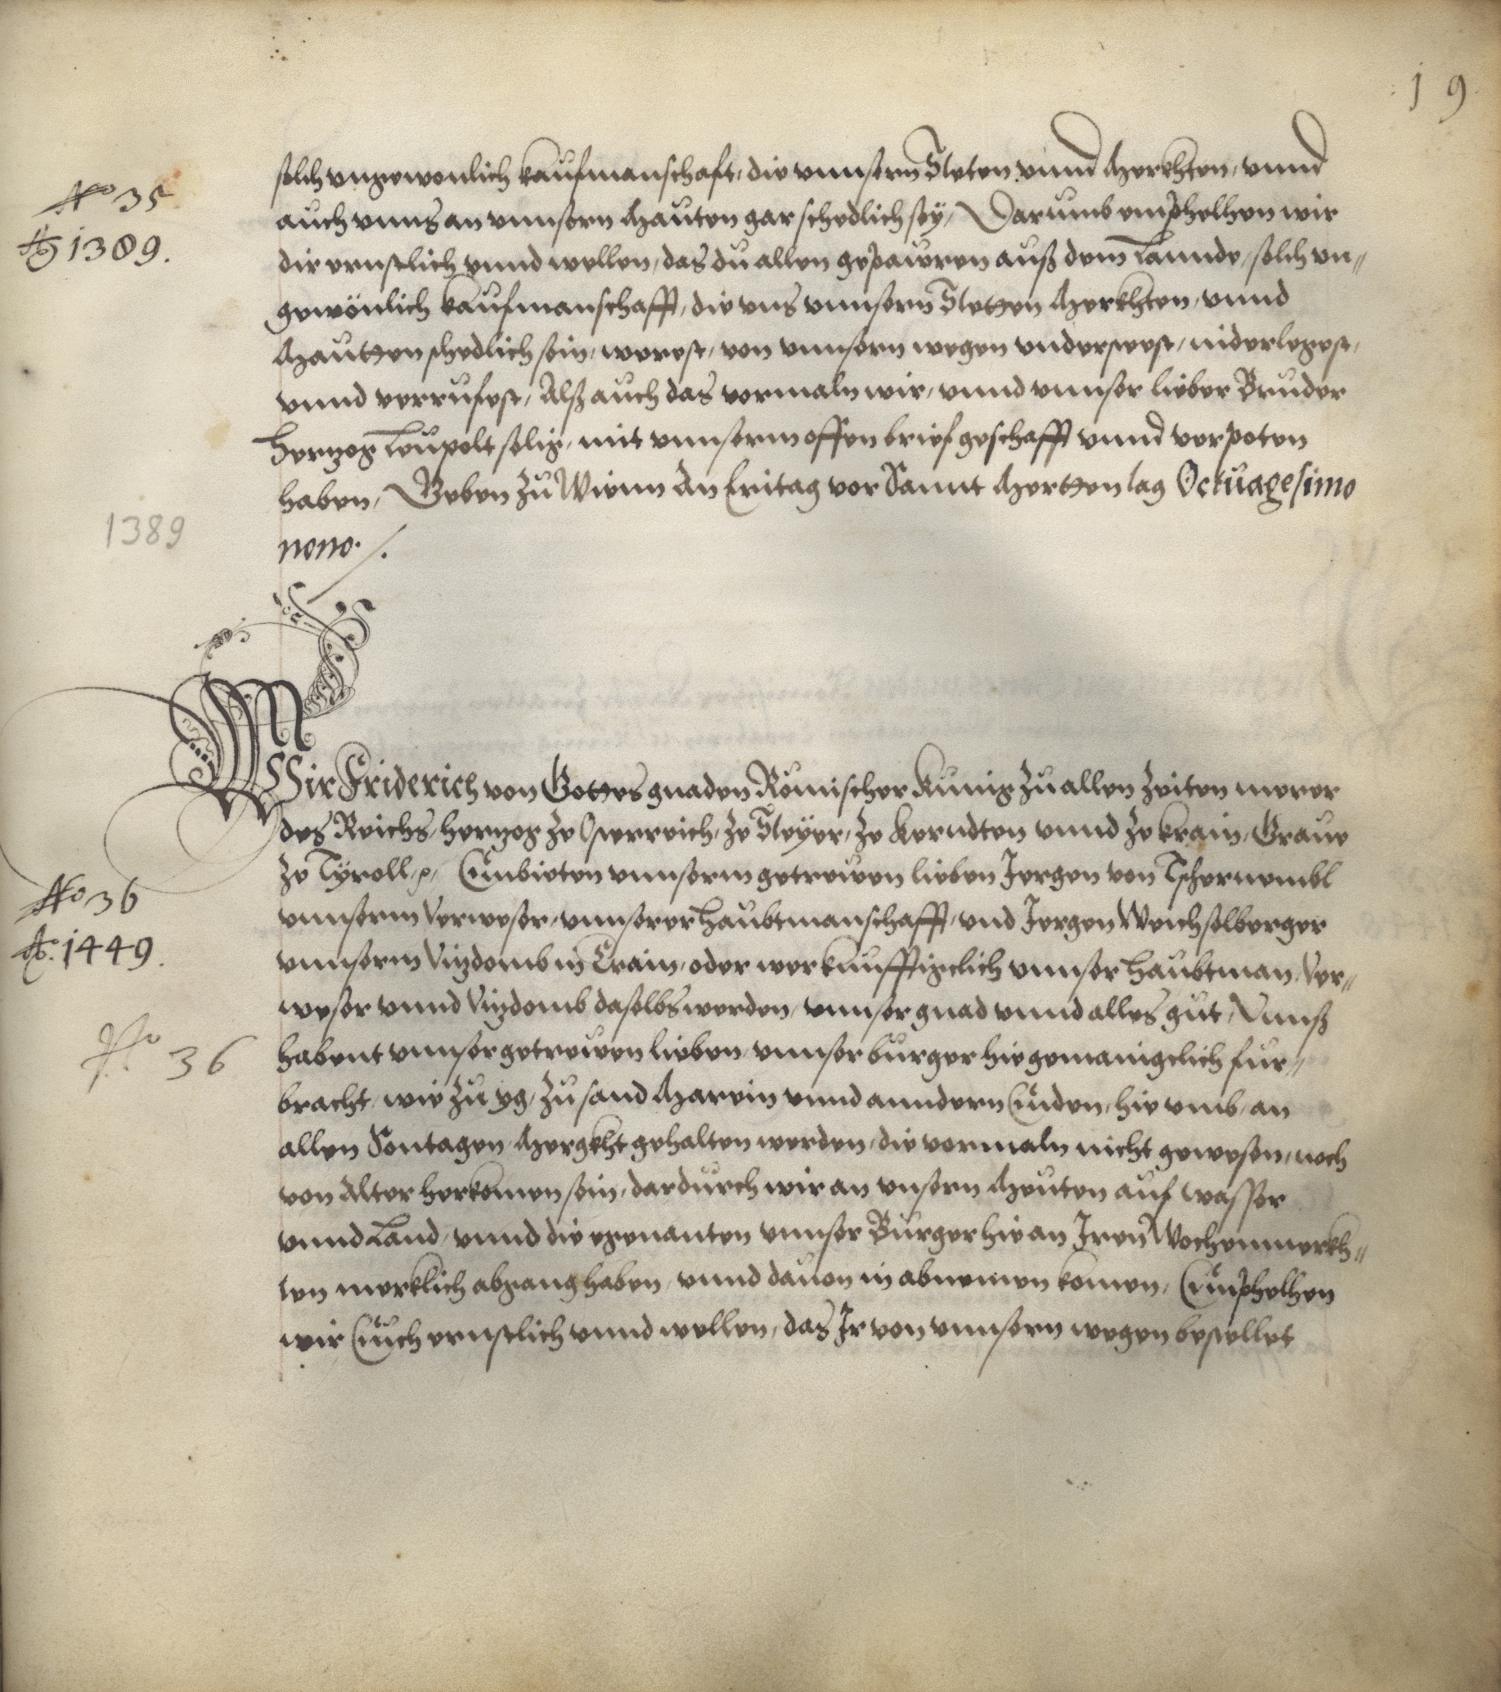 19
solch vngewonlich kaufmanschaft, die vnnsern Steten vnnd Merkhten, vnnd
No 35
auch vnns an vnnsern Mauten gar schedlich sey, Darumb emphelhen wir
Ao 1389.
dir ernstlich vnnd wellen, das du allen gepawren auß dem Lannde, solch vn=
gewönlich kaufmanschafft, die vns vnnsern Stetten Merkhten, vnnd
Mautten schedlich sein, werest, von vnnsern wegen vnderstest, niderlegest,
vnnd verrufest, Alß auch das vormaln wir, vnnd vnnser lieber Bruder
Hertzog Leupolt selig, mit vnnserm offen brief geschafft vnnd verpoten
haben, Geben zu Wienn An Eritag vor Sannt Mertten tag Octuagesimo
1389
nono.
Wir Friderich von Gottes gnaden Römischer Kunig zu allen Zeiten merer
des Reichs, Hertzog ze Osterreich, ze Steyer, ze Kerndten vnnd ze krain, Graue
ze Tyroll, Embieten vnnserm getrewen lieben Jergen von Tschernembl
No 36
vnnserm Verweser, vnnserer Haubtmanschafft, vnd Jergen Weichselberger
Ao. 1449.
vnnserm Vizdomb in Crain, oder wer kunfftigclich vnnser Haubtman, Ver=
weser vnnd Vizdomb daselbs werden, vnnser gnad vnnd alles gut, Vnnß
No 36
habent vnnser getrewen lieben, vnnser burger hie gemanigclich fur=
bracht, wie zu yg, zu sand Marein vnnd anndern Enden, hie vmb, an
allen Sontagen Mergkht gehalten werden, die vormaln nicht gewesen, noch
von Alter herkomen sein, dardurch wir an vnsern Meuten auf wasser
vnnd Land, vnnd die egenanten vnnser Burger hie an Iren Wochenmerkh=
ten merklich abgang haben, vnnd dauon in abnemen komen, Emphelhen
wir Euch ernstlich vnnd wellen, das Ir von vnnsern wegen bestellet